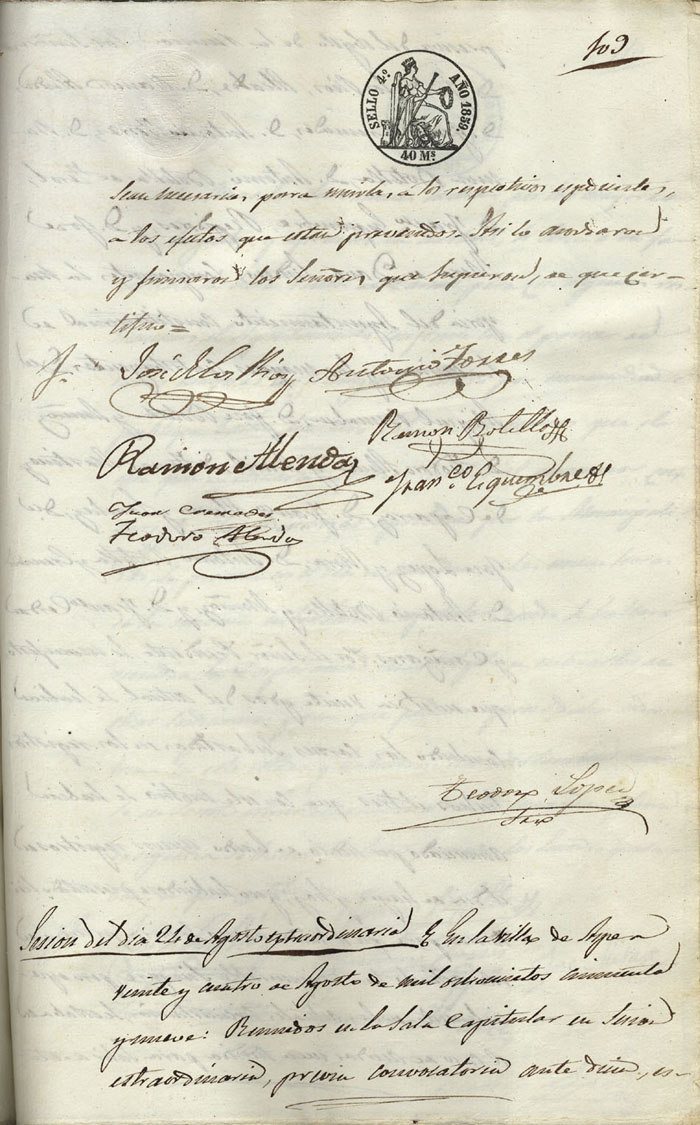 109
SELLO 4º AÑO 1859.
40 Ms
sean necesarias para unirla, a los respectivos espedientes,
a los efectos que estan prevenidos. Asi lo acordaron
y firmaron los Señores que supieron, de que cer-
tifico=
José de los Rios Antonio Torres
Ramon Botella
Ramon Alenda
Franco.
Juan Cremades
Teodoro Alenda
Teodoro Lopez
Srio
Sesion del dia 24 de Agosto extraordinaria En la villa de Aspe a
veinte y cuatro de Agosto de mil ochocientos cincuenta
y nueve: Reunidos en la Sala Capitular en Sesion
estraordinaria, previa convocatoria ante diem, es-